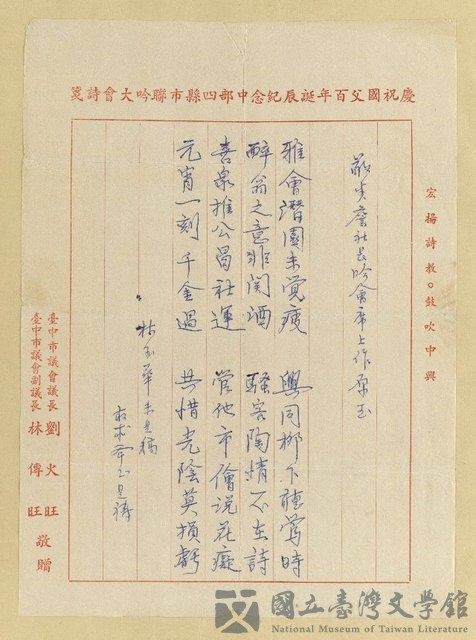 慶祝國父百年誕辰紀念中部四縣市聯吟大會詩箋
宏揚詩教。鼓吹中興
敬步 社長吟會席上作原玉
雅會潛園未覺疲 興同柳下聽鶯時
醉翁之意非關酒 騷客陶情不在詩
喜最推公昌社運 管他市儈說花癡
元宵一刻千金過 共惜光陰莫損虧
林 華未是稿
敬求 斧正是禱
臺中市議會議長 劉火旺
臺中市議會副議長 林傳旺
敬贈
國立臺灣文學館
National Museum of Taiwan Literature